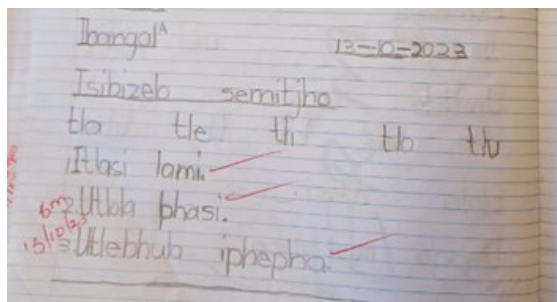 Ibangol A 13-10-2023
Isibizeb semitjho
tla tle tli tlo tlu
1. Itlasi lami.
2. Utlola phasi.
3. Utlebhub iphepha.
6m
13/10/23